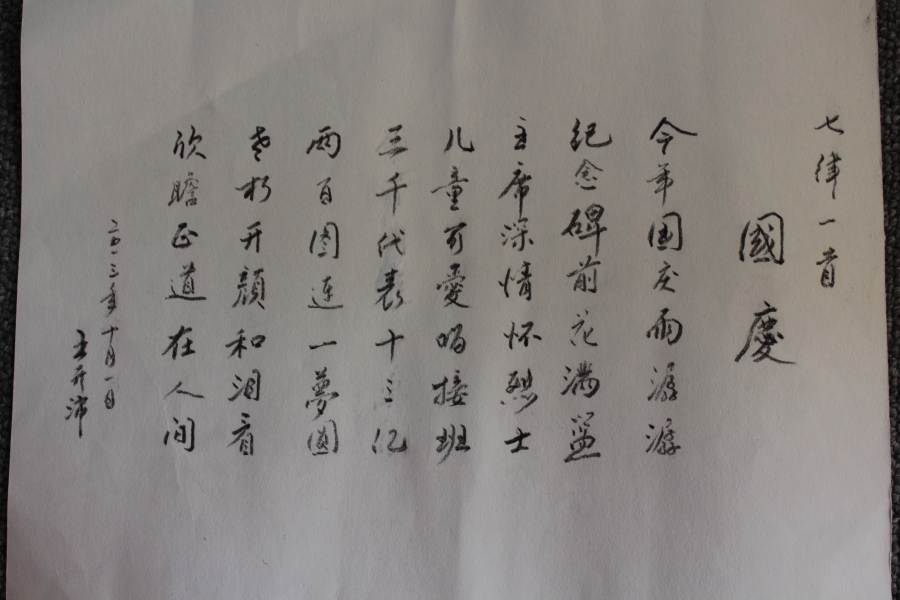 七律一首
國慶
今年国庆雨潺潺
纪念碑前花满篮
主席深情怀烈士
儿童可愛唱接班
三千代表十三亿
两百图连一夢圆
老朽开顔和泪看
欣瞻正道在人间
二〇一三年十月一日
王开沛